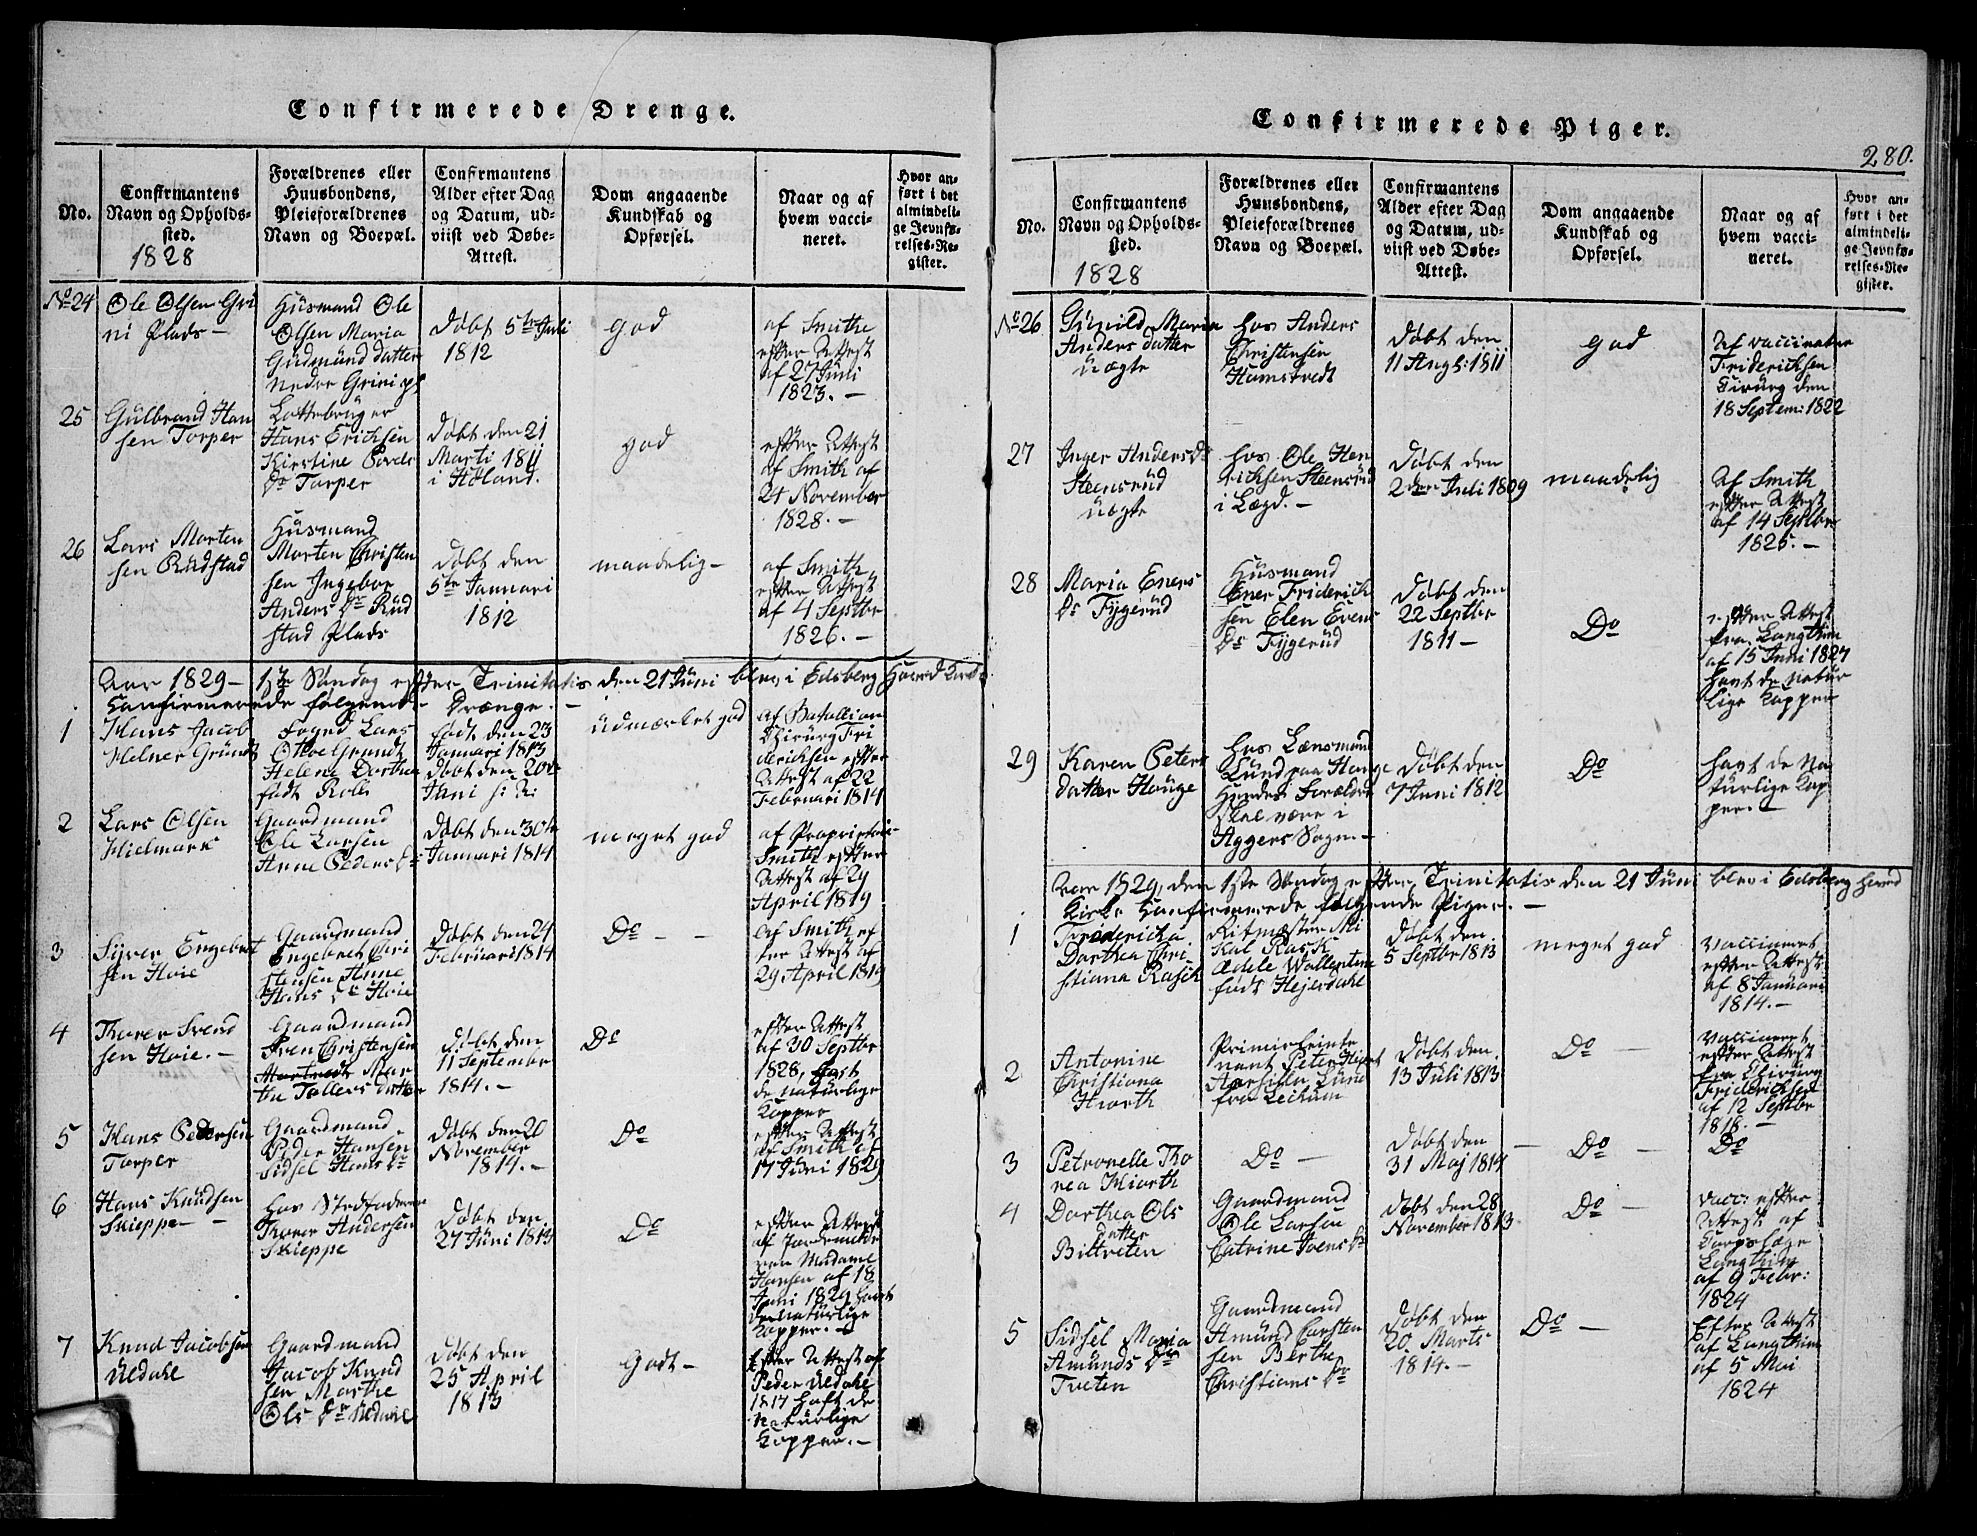 Confirmerede Drenge.
No.
Confirmantens
Navn og Opholds-
sted.
1828
Forældrenes eller
Huusbondens,
Pleieforældrenes
Navn og Boepæl.
Confirmantens
Alder efter Dag
og Datum, ud-
viist ved Døbe-
Attest.
Dom angaaende
Kundskab og
Opførsel.
Naar og af
hvem vacci-
neret.
Hvor an-
ført i det
almindeli-
ge Jevnfø-
relses-Re-
gister.
No 24
Ole Olsen Gri
ni Plads -
Husmand Ole
Olsen Maria
Gudmund datter
nedre Grini pl
Døbt 5te Juli
1812
god
af Smithe
efter Attest
af 27 Juni
1823. -
25
Gulbrand Han
sen Torper
Hans Erichsen
Kirstine
Ds Torper
Døbt den 21
Marti 1811
i Høland.
god
efter Attest
af Smith af
24 November
1828. -
26
Lars Morten
sen Rudstad
Husmand
Morten Christen
sen Ingebor
Anders Dr Rud
stad Plads
Døbt den
5te Januari
1812
maadelig -
af Smith
efter Attest
af 4 Septbr
1826. -
Aar 1829 - 1ste Søndag efter Trinitatis den 21 Juni blev i Edsberg Hoved Kirke
Confirmerede følgende Drænge. -
1
Hans Jacob
Helner Grundt
Foged Lars
Grundt
Helene Dorthea
født Roll
født den 23
Januari 1813
døbt den 20de
Juni s: A:
udmærket god
af Batallion
Chirurg Fri
derichsen efter
Attest af 22
Februari 1814
2
Lars Olsen
Hielmark
Gaardmand
Ole Larsen
Anne Peders Dr
Døbt den 30te
Januari 1814
meget god
af Proprietair
Smith efter
Attest af 29
April 1819
3
Syver Engebret
sen Hoie
Gaardmand
Engebret Chri
stensen Anne
Hans Dr Hoie
Døbt den 24
Februari 1814
Do - -
af Smith ef
ter Attest af
29 April 1819
4
Thorer Svend
sen Hoie. -
Gaardmand
Sven Christensen
Mar
the Tollers datter
Døbt den
11 September
1814. -
Do
efter Attest
af 30 Septbr
1828, hast
de naturlige
Kopper
5
Hans Pedersen
Torper
Gaardmand
Peder Hansen
Sidsel Hans Dr
Døbt den 20
November
1814. -
Do
efter Attest
af Smith af
17 Juni 1829
6
Hans Knudsen
Skieppe -
hos Stedfaderen
Thorer Andersen
Skieppe
Døbt den
27 Juni 1813
Do
efter Attest
af Jordemode
ren Madame
Hansen af 18
Juni 1829 havt
de naturlige
Kopper. -
7
Knud Jacobsen
Uedahl
Gaardmand
Jacob Knud
sen Marthe
Ols Dr Uedahl
Døbt den
25 April
1813
Godt -
Efter Attest af
Peder Uedahl
1817 haft de
Naturlige
Kopper. -
Confirmerede Piger.
280.
No.
Confirmantens
Navn og Opholds-
sted.
1828
Forældrenes eller
Huusbondens,
Pleieforældrenes
Navn og Boepæl.
Confirmantens
Alder efter Dag
og Datum, ud-
viist ved Døbe-
Attest.
Dom angaaende
Kundskab og
Opførsel.
Naar og af
hvem vacci-
neret.
Hvor an-
ført i det
almindeli-
ge Jevnfø-
relses-Re-
gister.
No 26
Gunild Maria
Anders datter
uægte
hos Anders
Christensen
Homstvedt
Døbt den
11 Augs: 1811
god
Af vaccinateur
Friderichsen
Cirurg den
18 Septem: 1822
27
Inger Anders Dr
Steensrud
uægte
hos Ole Hen
richsen Steensrud
i Lægd. -
Døbt den
2den Juli 1809
maadelig
Af Smith
efter Attest
af 14 Septbr
1825. -
28
Maria Eners
Ds Fygerud
Husmand
Ener Friderich
sen Elen Evens
Ds Fygerud
Døbt den
22 Septbr
1811 -
Do
efter Attest
fra Langthim
af 15 Juni 1827
havt de Natur
lige Kopper
29
Karen Peters
datter Houge
hos Lænsmand
Lund paa Houge
Hendes Forældre
skal være i
Aggers Sogn. -
Døbt den
7 Juni 1812
Do
havt de Na
turlige Kop
per. -
Aar 1829, den 1ste Søndag efter Trinitatis den 21 Juni blev i Edsberg Hoved
Kirke Confirmerede følgende Piger. -
1
Fridericha
Dorthea Chri
stiana Rasch
Ritmester Mi
kal Rasch
Ædele Wallentine
født Hejerdahl
Døbt den
5 Septbr 1813
meget god
vaccineret
efter Attest
af 8 Januari
1814. -
2
Antonine
Christiana
Hiorth
Primierleinte
nant Peter Hiort
Lund
fra Lechum
Døbt den
13 Juli 1813
Do -
vaccineret
efter Attest
fra Chirurg
Friderichsen
af 12 Septbr
1816. -
3
Petronelle Tho
rea Hiorth
Do -
Døbt den
31 Maj 1814
Do -
Do
4
Dorthea Ols
datter
Bittveten
Gaardmand
Ole Larsen
Catrine Joens Dr
døbt den 28
November 1813
Do -
vacc: efter
Attest af
Corpslæge
Langthim
af 9 Febr:
1824
5
Sidsel Maria
Amunds Dr
Tveten
Gaardmand
Amund Carsten
sen Berthe
Christians Dr
Døbt den
20. Marts
1814. -
Do -
Efter Attest
af Langthim
af 5 Mai
1824